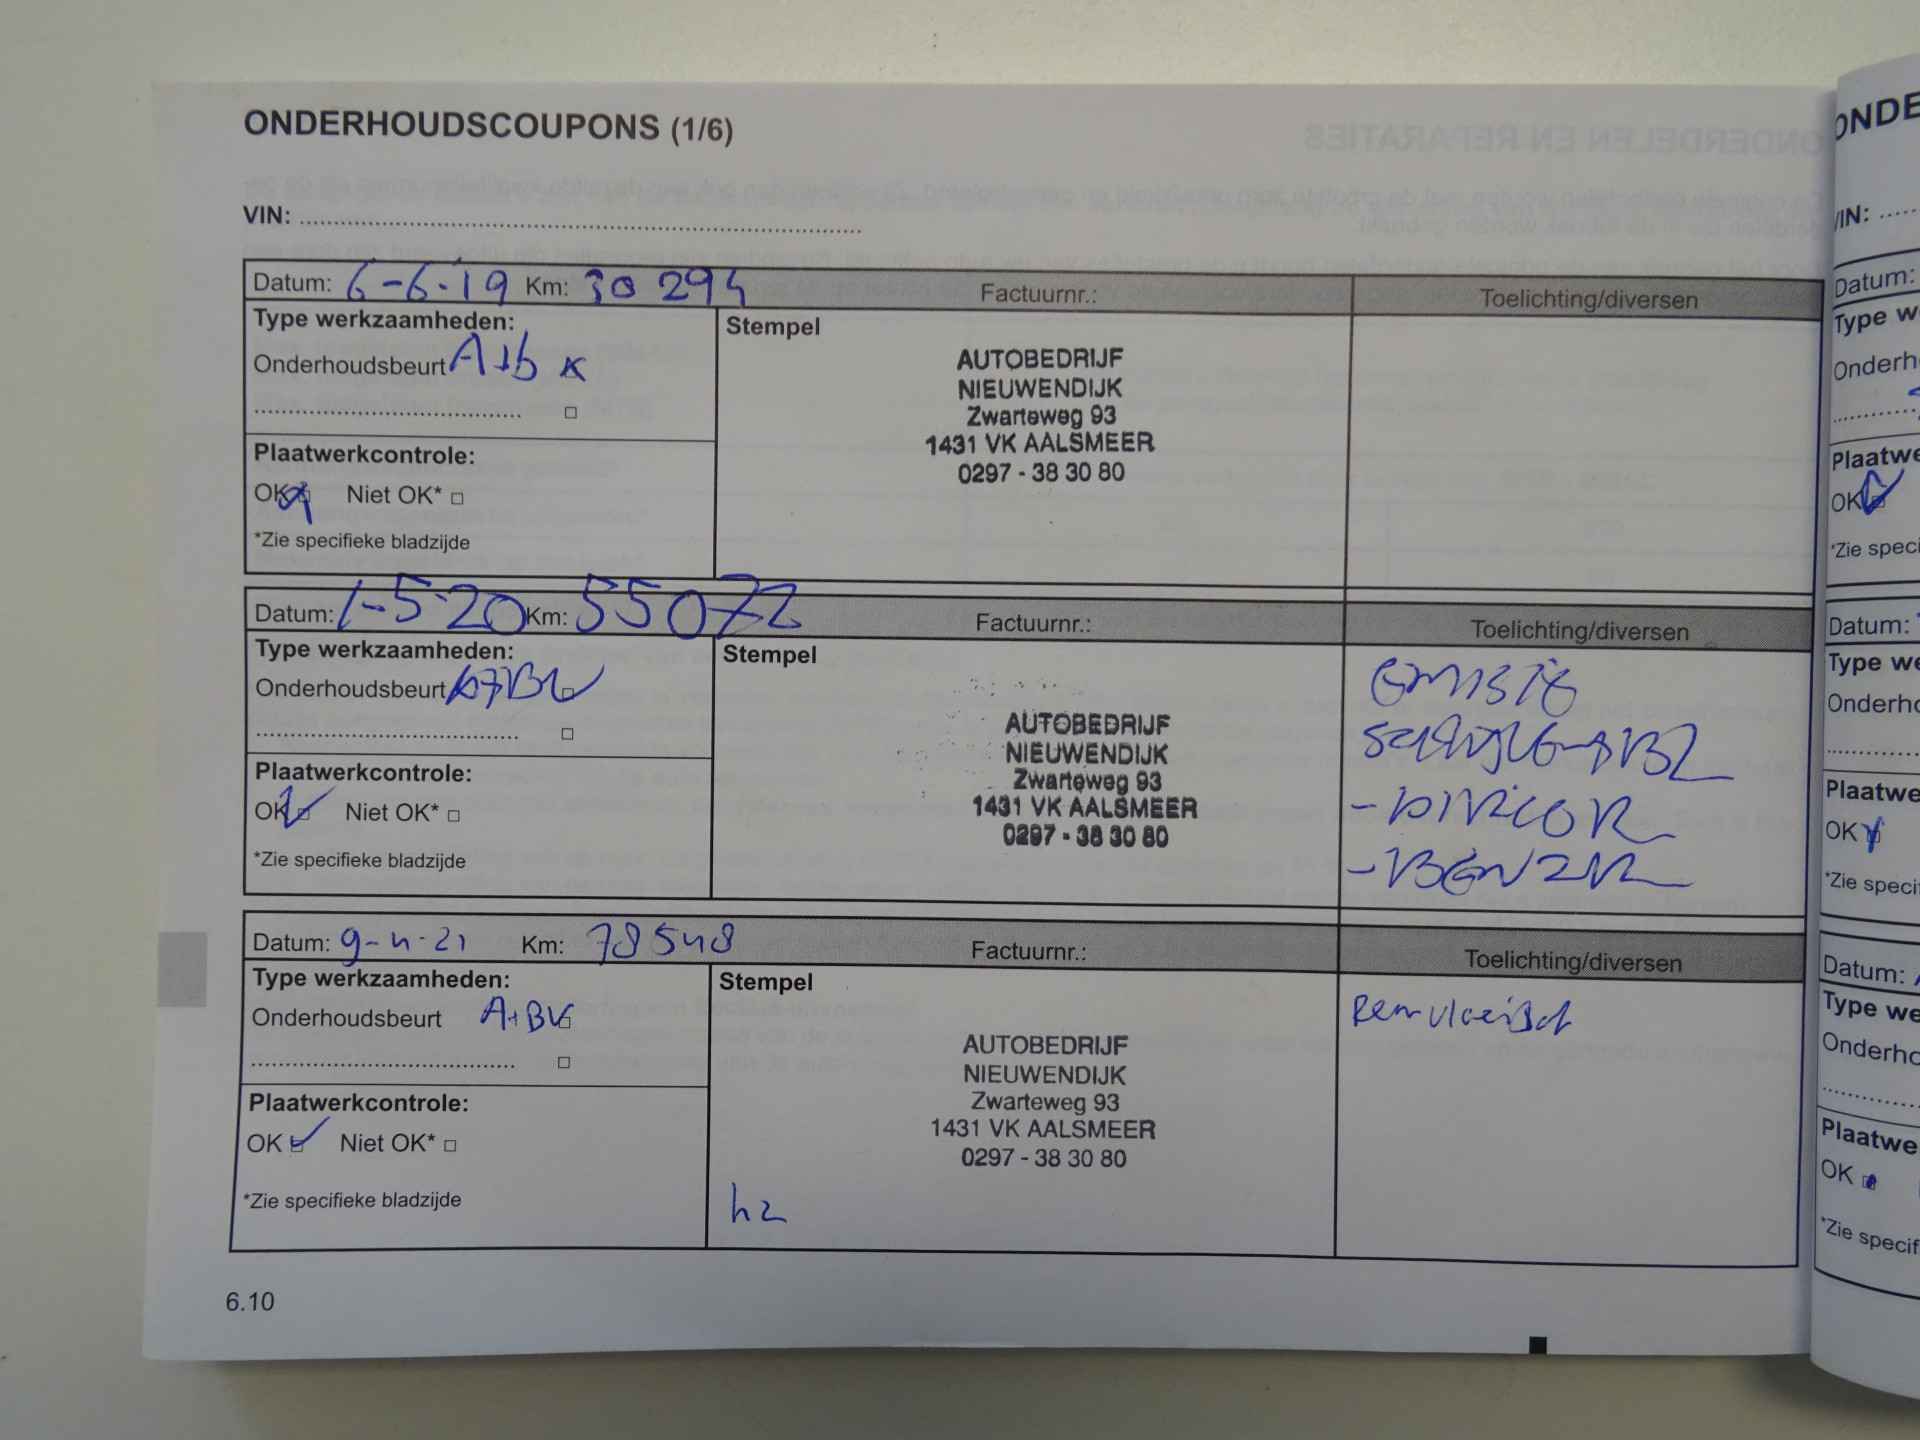 ONDERHOUDSCOUPONS (1/6)
VIN:
Datum: 6-6-19 Km: 30 294 Factuurnr.: Toelichting/diversen
Type werkzaamheden:
Stempel
Onderhoudsbeurt A+b x
AUTOBEDRIJF
NIEUWENDIJK
Zwarteweg 93
1431 VK AALSMEER
0297 - 38 30 80
Plaatwerkcontrole:
OK Niet OK*
*Zie specifieke bladzijde
Datum: 1-5-20 Km: 55072 Factuurnr.: Toelichting/diversen
Type werkzaamheden:
Stempel
Onderhoudsbeurt
AUTOBEDRIJF
NIEUWENDIJK
Zwarteweg 93
1431 VK AALSMEER
0297 - 38 30 80
Plaatwerkcontrole:
OK Niet OK*
*Zie specifieke bladzijde
Datum: 9-4-21 Km: 78548 Factuurnr.: Toelichting/diversen
Type werkzaamheden:
Stempel
Onderhoudsbeurt A+B
Remvloeistof
AUTOBEDRIJF
NIEUWENDIJK
Zwarteweg 93
1431 VK AALSMEER
0297 - 38 30 80
Plaatwerkcontrole:
OK Niet OK*
*Zie specifieke bladzijde
6.10
ONDE
VIN:
Datum:
Type we
Onderh
Plaatwe
OK
*Zie speci
Datum:
Type we
Onderho
Plaatwe
OK
*Zie specif
Datum:
Type we
Onderho
Plaatwe
OK
*Zie specif